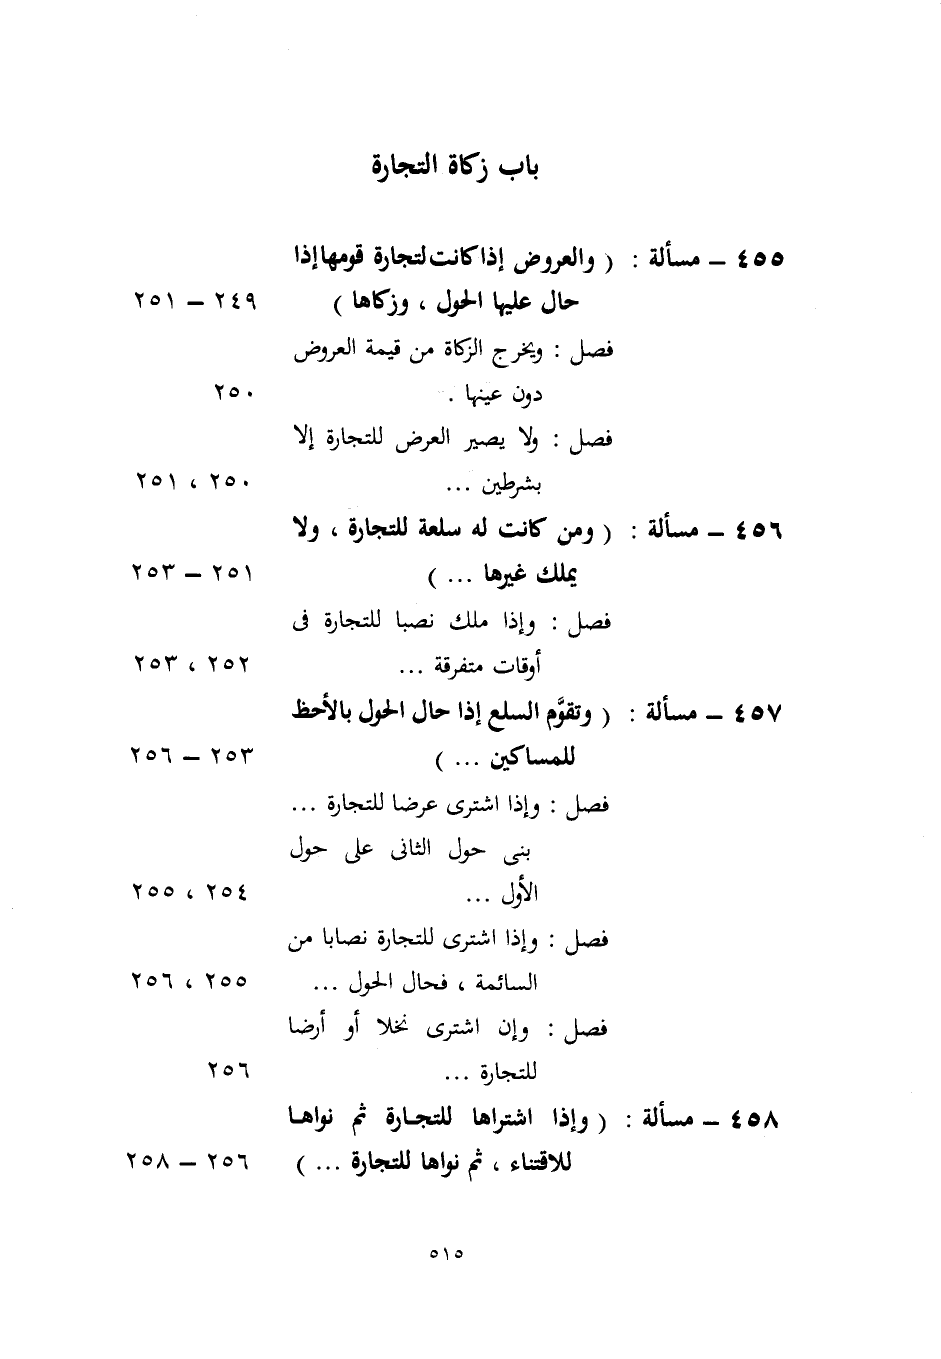 باب زكاة التجارة
٤٥٥ – مسألة : ( والعروض إذا كانت لتجارة قومها إذا
حال عليها الحول ، وزكاها ) ٢٤٩ – ٢٥١
فصل : ويخرج الزكاة من قيمة العروض
دون عينها . ٢٥٠
فصل : ولا يصير العرض للتجارة إلا
بشرطين ... ٢٥٠ ، ٢٥١
٤٥٦ – مسألة : ( ومن كانت له سلعة للتجارة ، ولا
يملك غيرها ... ) ٢٥١ – ٢٥٣
فصل : وإذا ملك نصبا للتجارة فى
أوقات متفرقة ... ٢٥٢ ، ٢٥٣
٤٥٧ – مسألة : ( وتقوَّم السلع إذا حال الحول بالأحظ
للمساكين ... ) ٢٥٣ – ٢٥٦
فصل : وإذا اشترى عرضا للتجارة ...
بنى حول الثانى على حول
الأول ... ٢٥٤ ، ٢٥٥
فصل : وإذا اشترى للتجارة نصابا من
السائمة ، فحال الحول ... ٢٥٥ ، ٢٥٦
فصل : وإن اشترى نخلا أو أرضا
للتجارة ... ٢٥٦
٤٥٨ – مسألة : ( وإذا اشتراها للتجارة ثم نواها
للاقتناء ، ثم نواها للتجارة ... ) ٢٥٦ – ٢٥٨
٥١٥